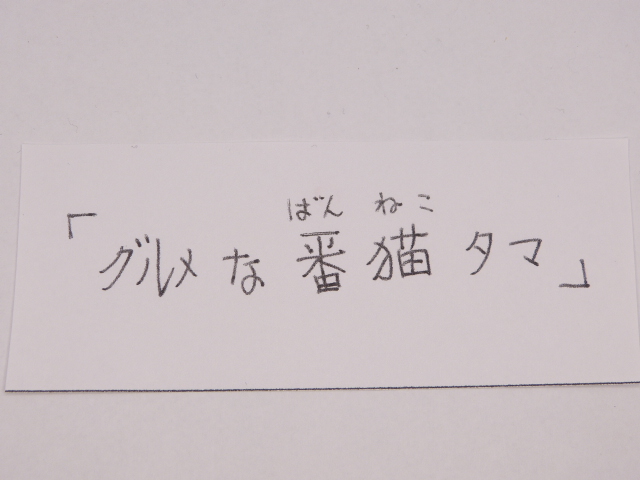 ばん ねこ
「グルメな番猫タマ」